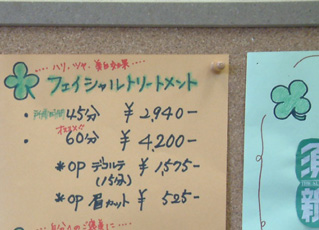 ハリ、ツヤ、美白効果…
フェイシャルトリートメント
・所要時間45分 ￥2,940-
オススメ!!
・60分 ￥4,200-
*OP デコルテ ￥1,575-
(15分)
*OP 眉カット ￥525-